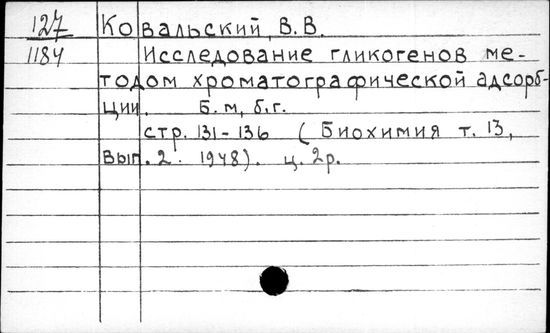 127 Ковальский, В.В.
1184 Исследование гликогенов ме-
тодом хроматографической адсорб-
ции. Б.м, б.г.
стр. 131-136 (Биохимия т. 13,
вып. 2. 1948). ц. 2р.